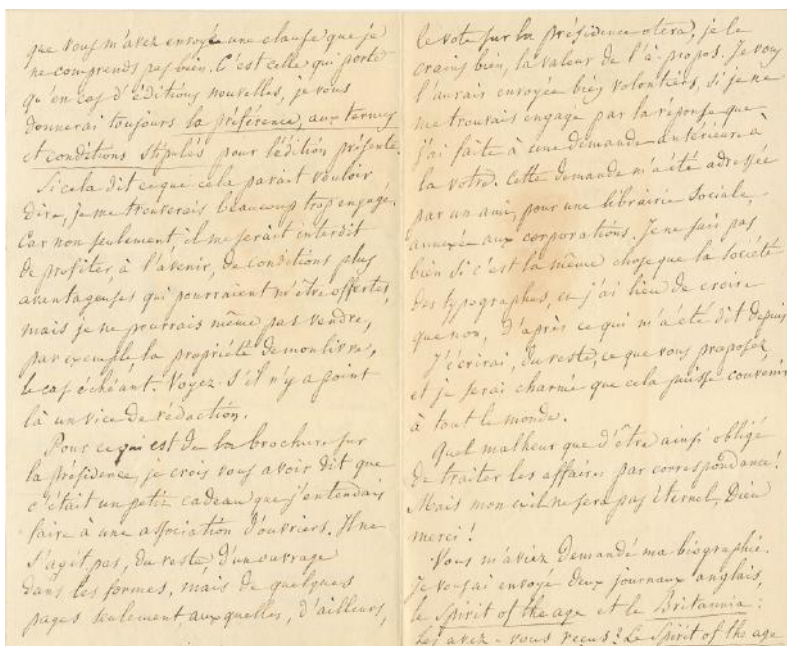 que vous m'avez envoyée une clause que je
ne comprends pas bien. C'est celle qui porte
qu'en cas d'éditions nouvelles, je vous
donnerai toujours la préférence, aux termes
et conditions stipulés pour l'édition présente.
Si cela dit ce que cela parait vouloir
dire, je me trouverais beaucoup trop engagé.
Car non seulement, il me serait interdit
de profiter, à l'avenir, de conditions plus
avantageuses qui pourraient m'être offertes,
mais je ne pourrais même pas vendre,
par exemple la propriété de mon livre,
le cas échéant. Voyez s'il n'y a point
là un vice de rédaction.
Pour ce qui est de la brochure sur
la présidence, je crois vous avoir dit que
c'était un petit cadeau que j'entendais
faire à une association d'ouvriers. Il ne
s'agit pas, du reste, d'un ouvrage
dans les formes, mais de quelques
pages seulement auxquelles, d'ailleurs,
le vote sur la présidence otera, je le
crains bien, la valeur de l'à-propos. Je vous
l'aurais envoyée bien volontiers, si je ne
me trouvais engagé par la réponse que
j'ai faite à une demande antérieure à
la votre. Cette demande m'a été adressée
par un ami, pour une librairie sociale,
annexée aux corporations. Je ne sais pas
bien si c'est la même chose que la société
des typographes, et j'ai lieu de croire
que non, d'après ce qui m'a été dit depuis
J'écrirai, du reste, ce que vous proposez
et je serai charmé que cela puisse convenir
à tout le monde.
Quel malheur que d'être ainsi obligé
de traiter les affaires par correspondance!
Mais mon exil ne sera pas éternel, Dieu
merci!
Vous m'aviez demandé ma biographie.
Je vous ai envoyé deux journaux anglais,
le Spirit of the age et le Britannia:
les avez-vous reçus? Le Spirit of the age